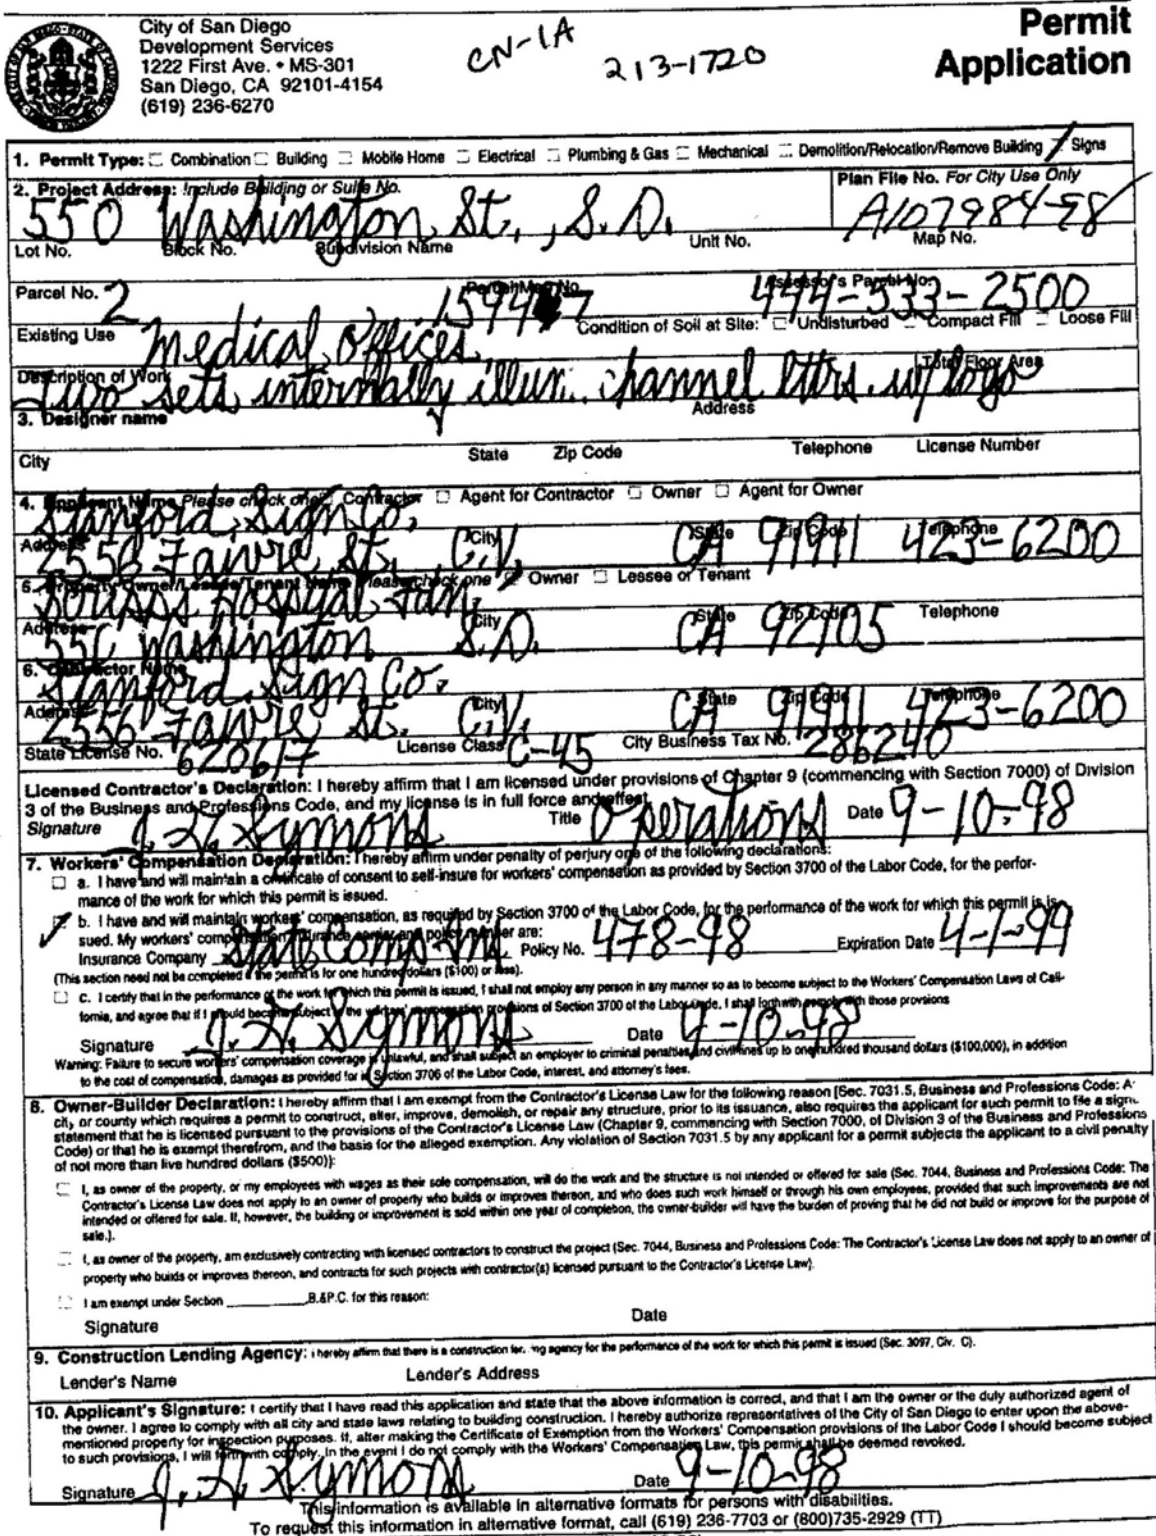 City of San Diego
Development Services
1222 First Ave. • MS-301
San Diego, CA 92101-4154
(619) 236-6270
CN-1A
213-1720
Permit
Application
1. Permit Type: Combination Building Mobile Home Electrical Plumbing & Gas Mechanical Demolition/Relocation/Remove Building Signs
2. Project Address: Include Building or Suite No. Plan File No. For City Use Only
550 Washington St., S.D. A107984-98
Lot No. Block No. Subdivision Name Unit No. Map No.
Parcel No. 2 Parcel Map No. 15944 7 Assessor's Parcel No. 444-533-2500
Existing Use Medical Offices Condition of Soil at Site: Undisturbed Compact Fill Loose Fill
Description of Work Total Floor Area
Two sets internally illum. channel lttrs. w/logo
3. Designer name Address
City State Zip Code Telephone License Number
4. Applicant Name Please check one Contractor Agent for Contractor Owner Agent for Owner
Stanford Sign Co.
Address City State Zip Code Telephone
2556 Faivre St. C.V. CA 91911 423-6200
5. Property Owner/Lessee/Tenant Name Please check one Owner Lessee or Tenant
Scripps Hospital
Address City State Zip Code Telephone
550 Washington S.D. CA 92103
6. Contractor Name
Stanford Sign Co.
Address City State Zip Code Telephone
2556 Faivre St. C.V. CA 91911 423-6200
State License No. 620617 License Class C-45 City Business Tax No. 286240
Licensed Contractor's Declaration: I hereby affirm that I am licensed under provisions of Chapter 9 (commencing with Section 7000) of Division
3 of the Business and Professions Code, and my license is in full force and effect.
Signature J. H. Symons Title Operations Date 9-10-98
7. Workers' Compensation Declaration: I hereby affirm under penalty of perjury one of the following declarations:
a. I have and will maintain a certificate of consent to self-insure for workers' compensation as provided by Section 3700 of the Labor Code, for the perfor-
mance of the work for which this permit is issued.
b. I have and will maintain workers' compensation, as required by Section 3700 of the Labor Code, for the performance of the work for which this permit is is-
sued. My workers' compensation insurance carrier and policy number are:
Insurance Company State Comp Ins Policy No. 478-98 Expiration Date 4-1-99
(This section need not be completed if the permit is for one hundred dollars ($100) or less).
C. I certify that in the performance of the work for which this permit is issued, I shall not employ any person in any manner so as to become subject to the Workers' Compensation Laws of Cali-
fornia, and agree that if I should become subject to the workers' compensation provisions of Section 3700 of the Labor Code, I shall forthwith comply with those provsions
Signature J. H. Symons Date 9-10-98
Warning: Failure to secure workers' compensation coverage is unlawful, and shall subject an employer to criminal penalties and civil fines up to one hundred thousand dollars ($100,000), in addition
to the cost of compensation, damages as provided for in Section 3706 of the Labor Code, interest, and attorney's fees.
8. Owner-Builder Declaration: I hereby affirm that I am exempt from the Contractor's License Law for the following reason [Sec. 7031.5, Business and Professions Code: A
city or county which requires a permit to construct, alter, improve, demolish, or repair any structure, prior to its issuance, also requires the applicant for such permit to file a sign
statement that he is licensed pursuant to the provisions of the Contractor's License Law (Chapter 9, commencing with Section 7000, of Division 3 of the Business and Professions
Code) or that he is exempt therefrom, and the basis for the alleged exemption. Any violation of Section 7031.5 by any applicant for a permit subjects the applicant to a civil penalty
of not more than five hundred dollars ($500)]:
I, as owner of the property, or my employees with wages as their sole compensation, will do the work and the structure is not intended or offered for sale (Sec. 7044, Business and Professions Code: The
Contractor's License Law does not apply to an owner of property who builds or improves thereon, and who does such work himself or through his own employees, provided that such improvements are not
intended or offered for sale. If, however, the building or improvement is sold within one year of completion, the owner-builder will have the burden of proving that he did not build or improve for the purpose of
sale.).
I, as owner of the property, am exclusively contracting with licensed contractors to construct the project (Sec. 7044, Business and Professions Code: The Contractor's License Law does not apply to an owner of
property who builds or improves thereon, and contracts for such projects with contractor(s) licensed pursuant to the Contractor's License Law).
I am exempt under Section ________ B.&P.C. for this reason:
Signature Date
9. Construction Lending Agency: I hereby affirm that there is a construction agency for the performance of the work for which this permit is issued (Sec. 3097, Civ. C).
Lender's Name Lender's Address
10. Applicant's Signature: I certify that I have read this application and state that the above information is correct, and that I am the owner or the duly authorized agent of
the owner. I agree to comply with all city and state laws relating to building construction. I hereby authorize representatives of the City of San Diego to enter upon the above-
mentioned property for inspection purposes. If, after making the Certificate of Exemption from the Workers' Compensation provisions of the Labor Code I should become subject
to such provisions, I will forthwith comply. In the event I do not comply with the Workers' Compensation Law, this permit shall be deemed revoked.
Signature J. H. Symons Date 9-10-98
This information is available in alternative formats for persons with disabilities.
To request this information in alternative format, call (619) 236-7703 or (800)735-2929 (TT)